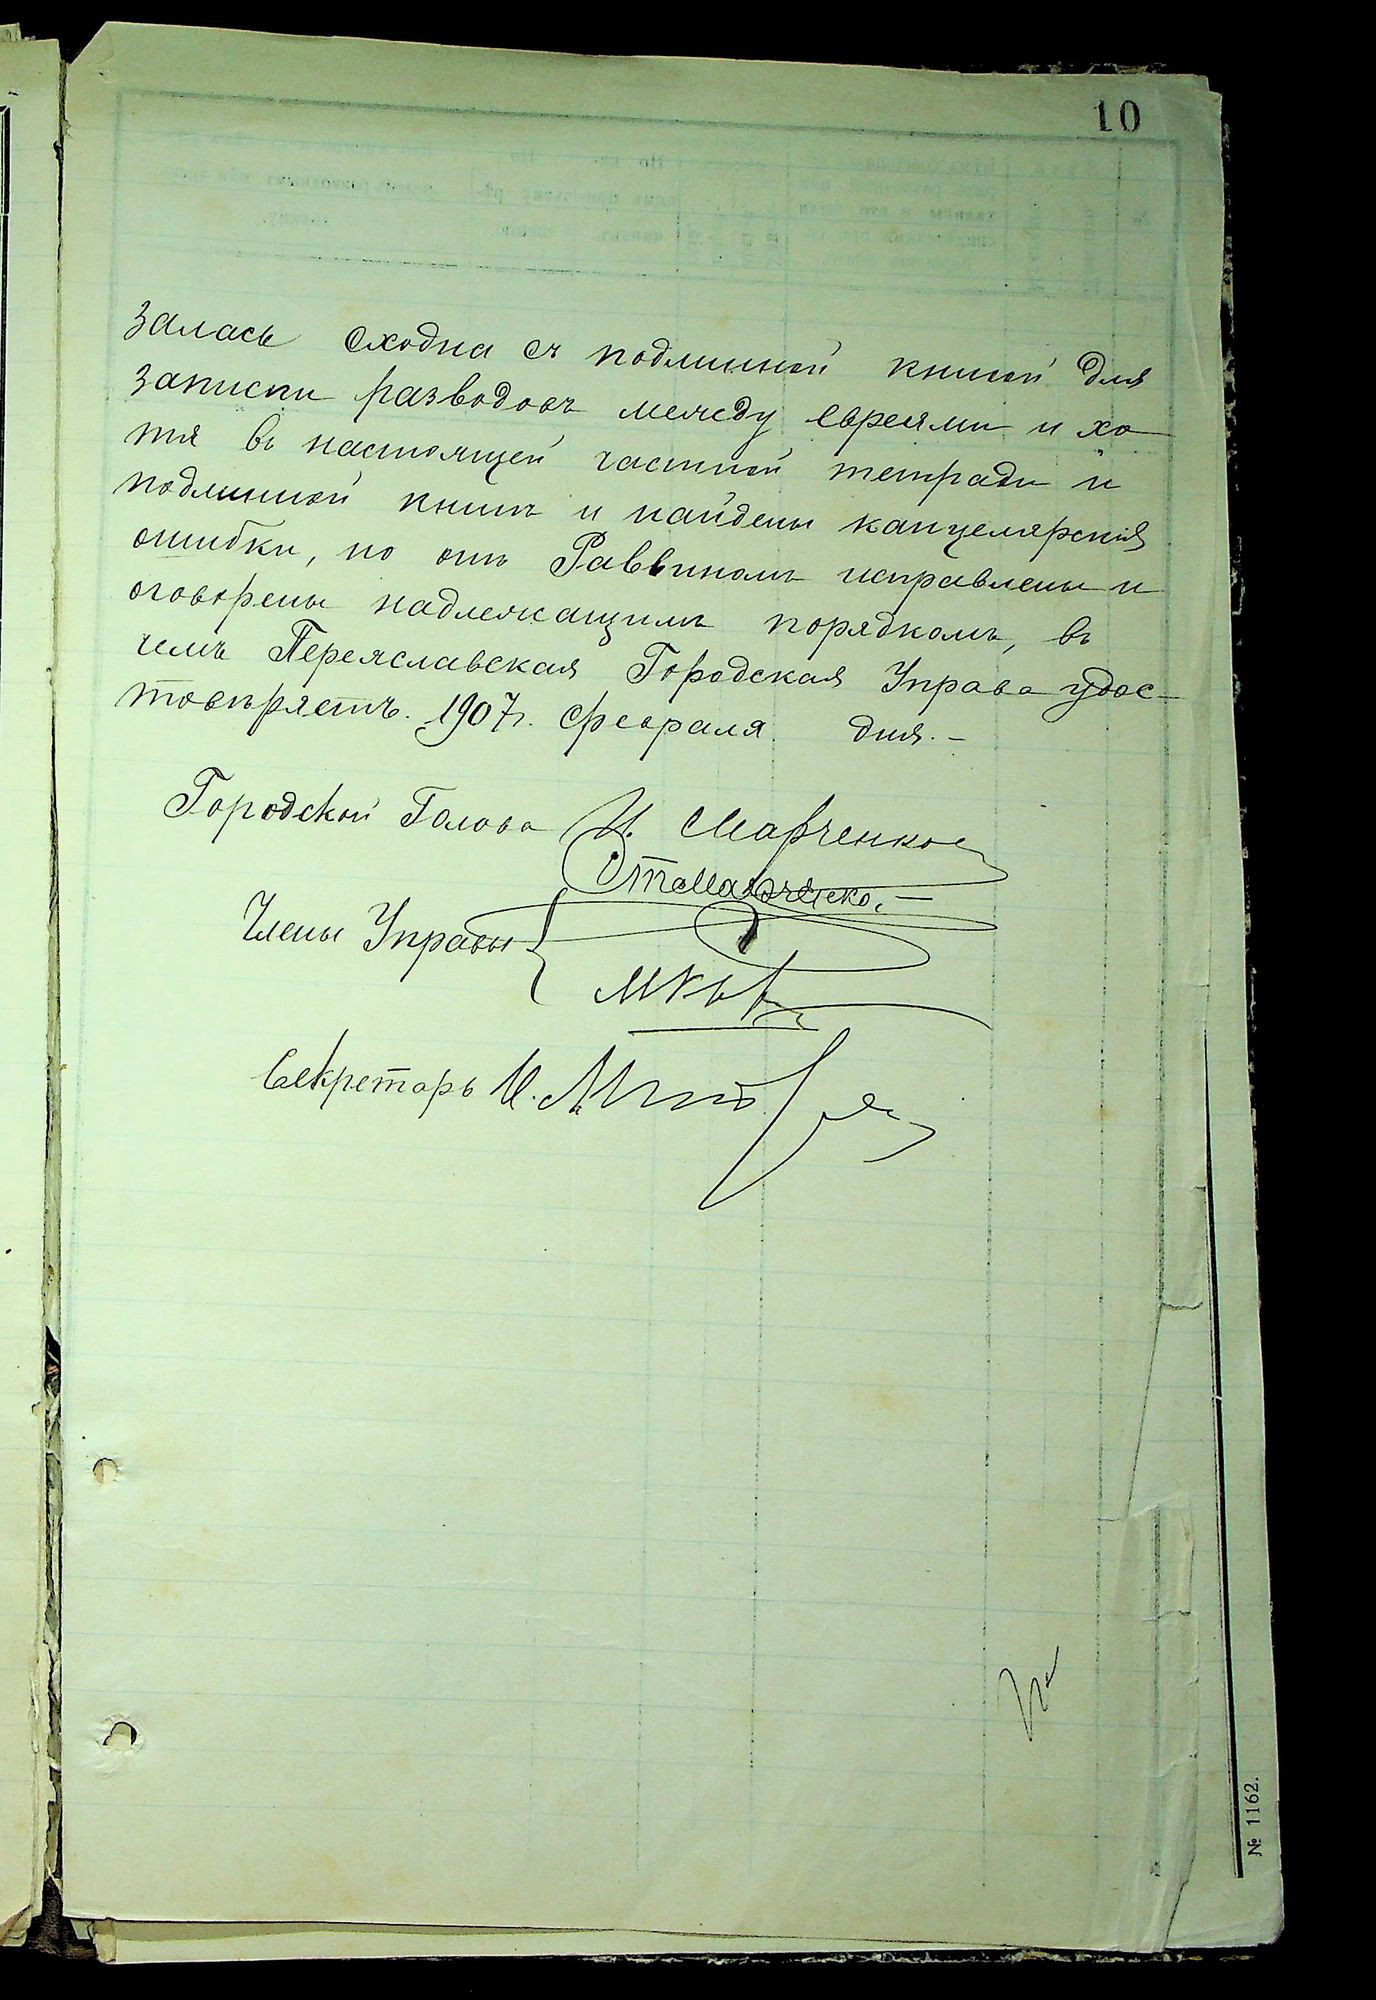 10
залась сходна съ подлинной книгой для
записки разводовъ между евреями и хо
тя въ настоящей частной тетради и
подлинной книгѣ и найдены канцелярскія
ошибки, но онѣ Раввиномъ исправлены и
оговорены надлежащимъ порядкомъ, въ
чемъ Переяславская Городская Управа удос-
товѣряетъ. 1907 г. февраля дня. –
Городской Голова И. Марченко
Члены Управы
Секретарь И.
№ 1162.